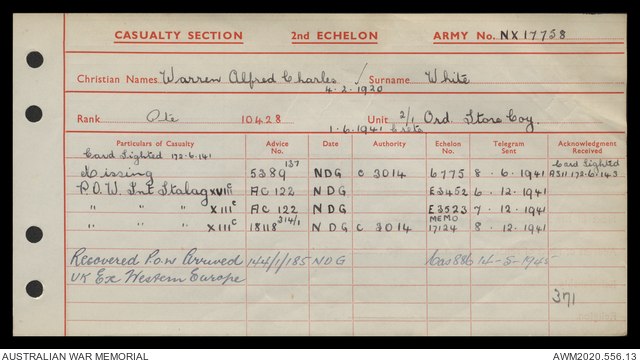 CASUALTY SECTION 2nd ECHELON ARMY No. NX17758
Christian Names Warren Alfred Charles / Surname White
4.2.1920
Rank Pte 10428 Unit 2/1 Ord. Store Coy.
1.6.1941 Crete
Particulars of Casualty Advice No. Date Authority Echelon No. Telegram Sent Acknowledgment Received
Card Sighted 172.6.141
Missing 5389 137 NDG C 3014 6775 8.6.1941 Card Sighted A311 172.6.143
P.O.W. Int Stalag XVIIIC AC 122 NDG E3452 6.12.1941
" " " XIIIC AC 122 NDG E3523 7.12.1941
" " " XIIIC 18118 314/1 NDG C 3014 MEMO 17124 8.12.1941
Recovered P.O.W Arrived 144/1/185 NDG Cas886 14-5-1945
UK Ex Western Europe
371
AUSTRALIAN WAR MEMORIAL AWM2020.556.13